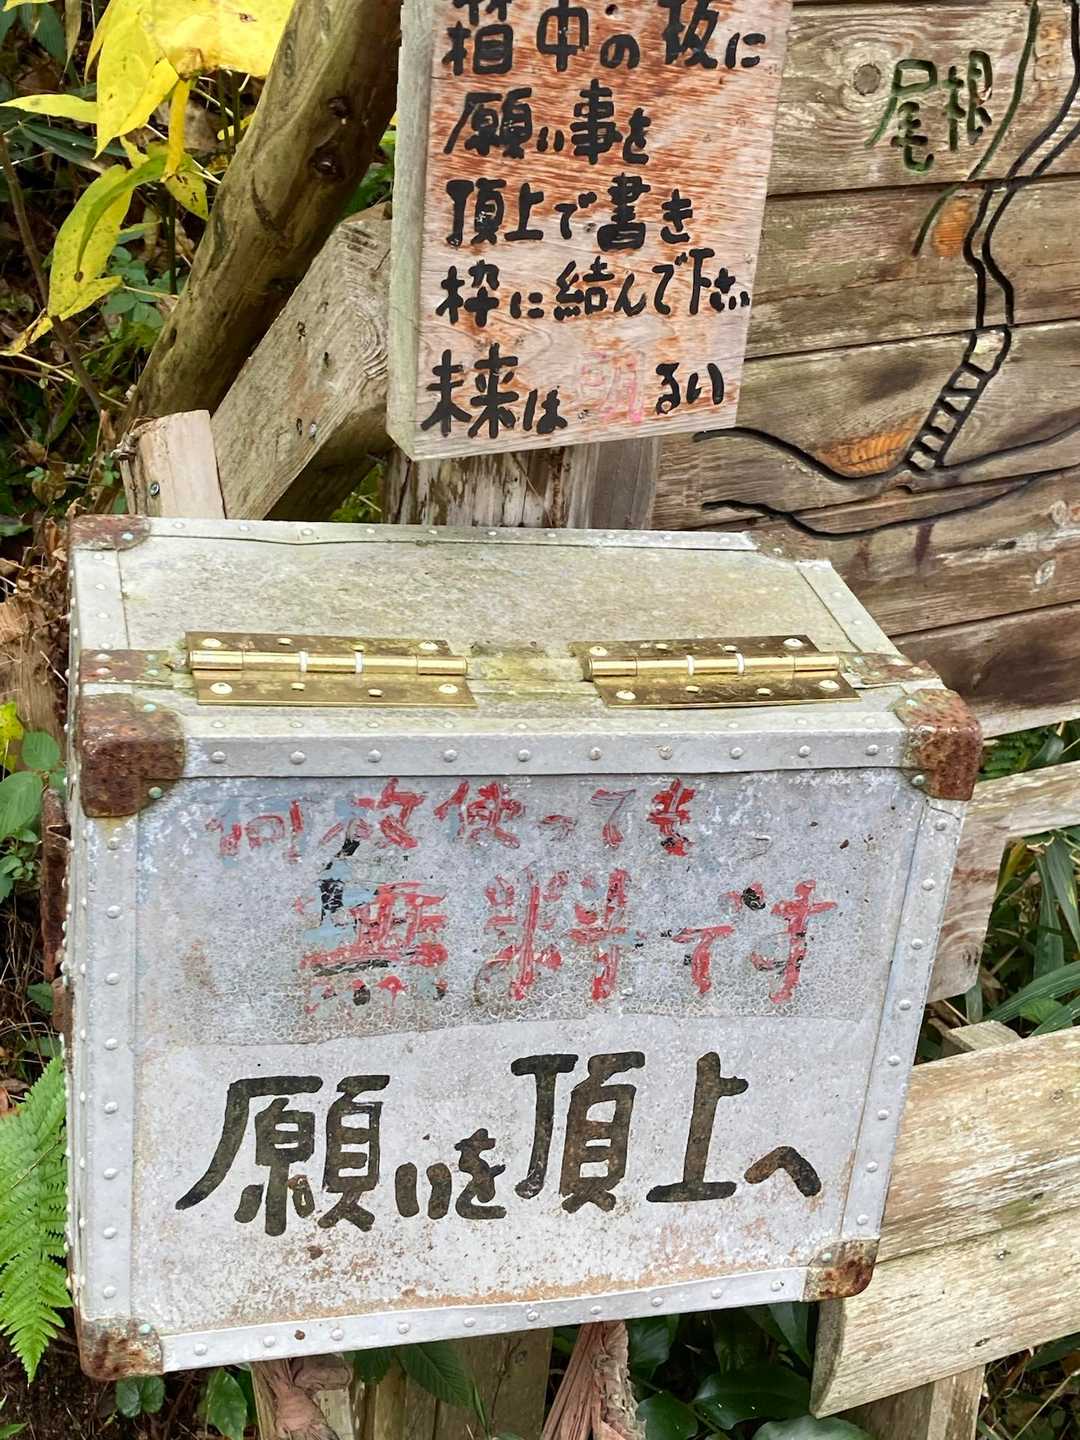 箱中の板に
願い事を
頂上で書き
枠に結んで下さい
未来は明るい
尾根
何枚使っても
無料です
願いを頂上へ